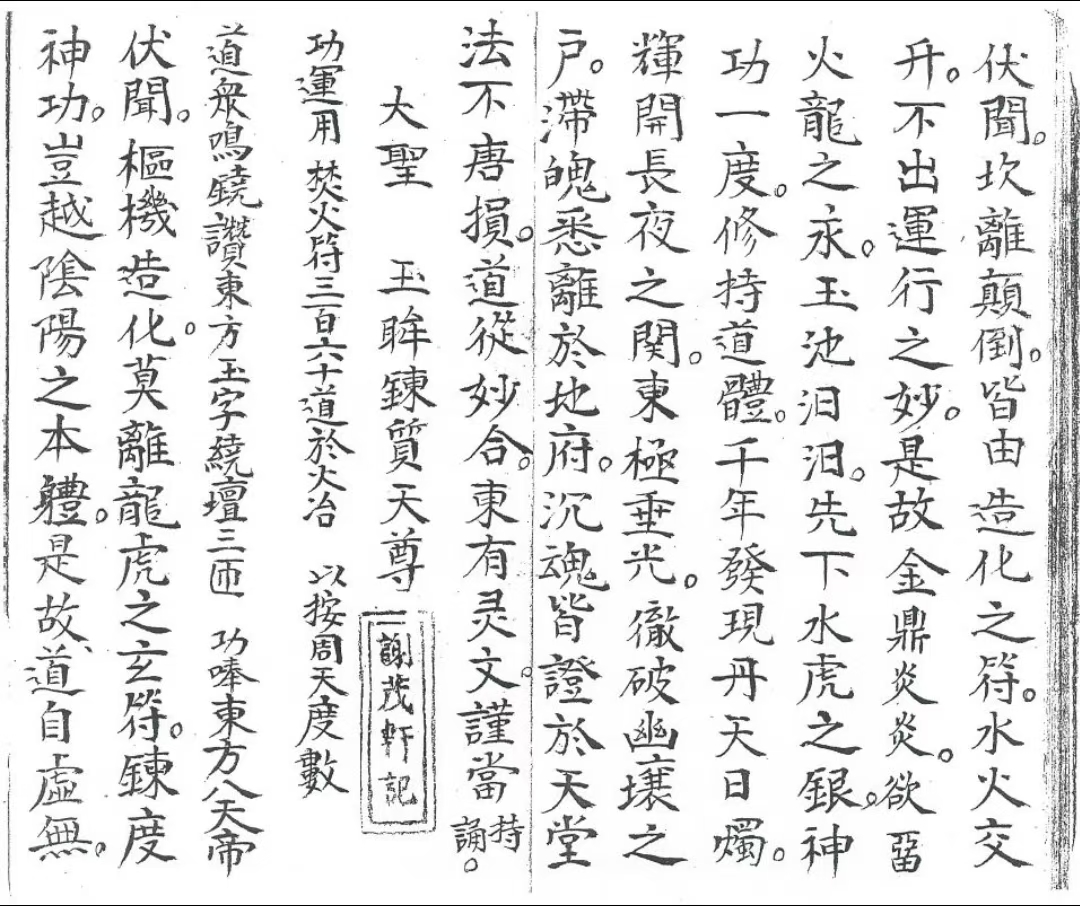 伏聞。坎離顛倒。皆由造化之符。水火交
升。不出運行之妙。是故金鼎炎炎。欲畱
火龍之永。玉池汩汩。先下水虎之銀。神
功一度。修持道體。千年發現丹天日燭。
輝開長夜之関。東極垂光。徹破幽壤之
户。滯魄悉離於地府。沉魂皆證於天堂
法不唐損。道從妙合。東有灵文。謹當持誦。
大聖 玉眸鍊質天尊
謝茂軒記
功運用 焚火符三百六十道於火冶 以按周天度數
道衆鳴鐃讚東方玉字繞壇三匝 功唪東方八天帝
伏聞。樞機造化。莫離龍虎之玄符。鍊度
神功。豈越陰陽之本體。是故、道自虛無。